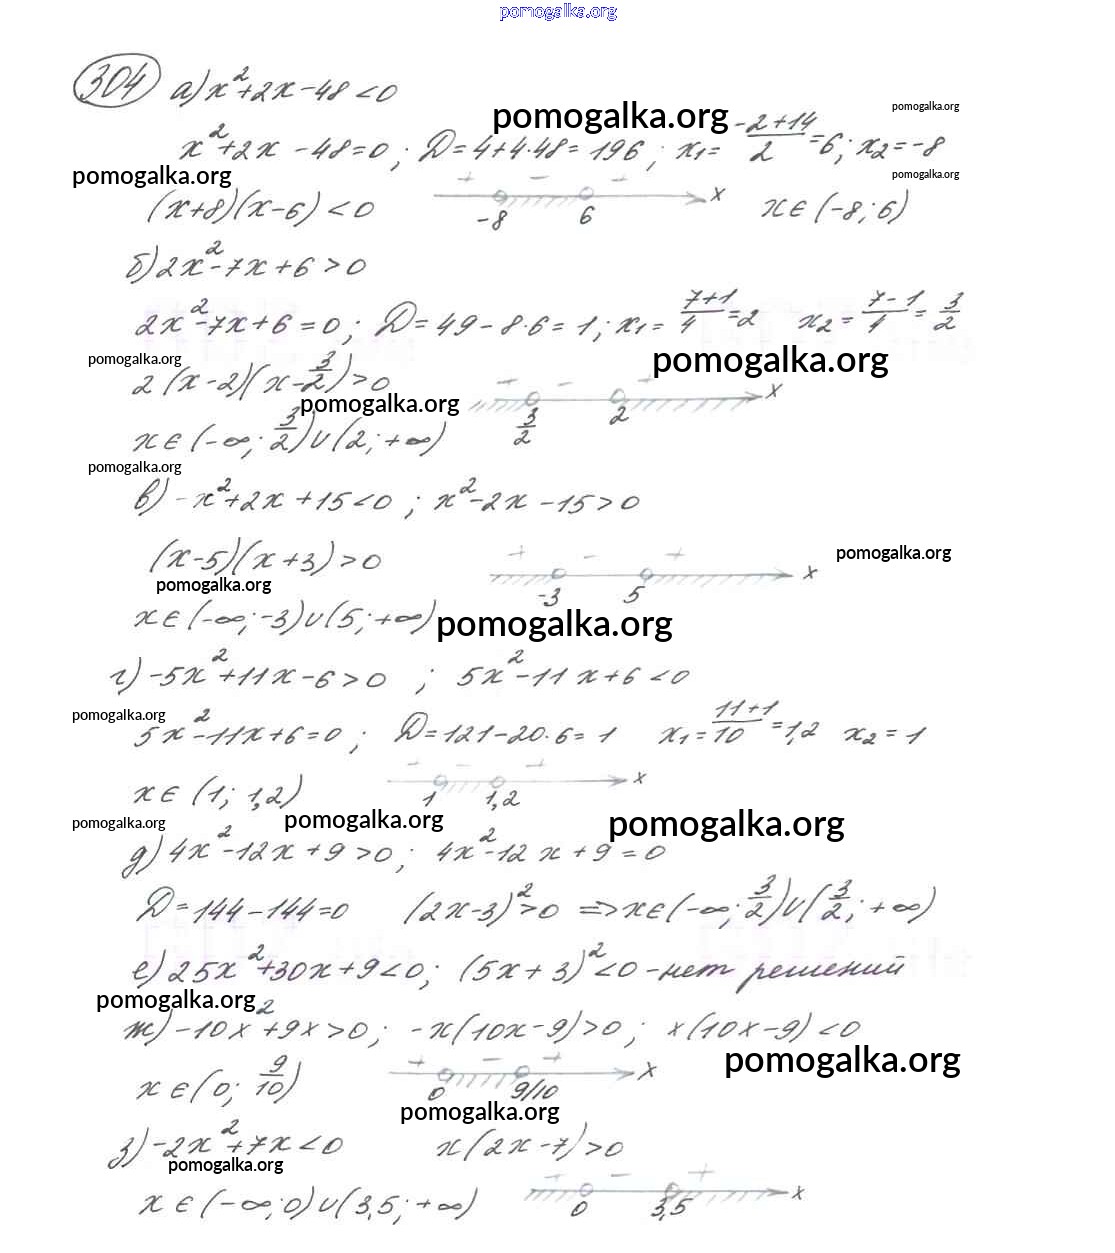 pomogalka.org
304 а) x²+2x-48<0
pomogalka.org pomogalka.org
x²+2x-48=0; D=4+4·48=196; x₁=(-2+14)/2=6; x₂=-8
pomogalka.org pomogalka.org
(x+8)(x-6)<0 + - + -8 6 x x∈(-8;6)
б) 2x²-7x+6>0
2x²-7x+6=0; D=49-8·6=1; x₁=(7+1)/4=2 x₂=(7-1)/4=3/2
pomogalka.org pomogalka.org
2(x-2)(x-3/2)>0 + - + 3/2 2 x
pomogalka.org
x∈(-∞;3/2)∪(2;+∞)
pomogalka.org
в) -x²+2x+15<0; x²-2x-15>0
(x-5)(x+3)>0 + - + -3 5 x
pomogalka.org
pomogalka.org
x∈(-∞;-3)∪(5;+∞)
pomogalka.org
г) -5x²+11x-6>0; 5x²-11x+6<0
pomogalka.org
5x²-11x+6=0; D=121-20·6=1 x₁=(11+1)/10=1,2 x₂=1
x∈(1; 1,2) + - + 1 1,2 x
pomogalka.org pomogalka.org pomogalka.org
д) 4x²-12x+9>0; 4x²-12x+9=0
D=144-144=0 (2x-3)²>0 => x∈(-∞;3/2)∪(3/2;+∞)
е) 25x²+30x+9<0; (5x+3)²<0 - нет решений
pomogalka.org
ж) -10x²+9x>0; -x(10x-9)>0; x(10x-9)<0
pomogalka.org
x∈(0; 9/10) + - + 0 9/10 x
pomogalka.org
з) -2x²+7x<0 x(2x-7)>0
pomogalka.org
x∈(-∞;0)∪(3,5;+∞) + - + 0 3,5 x